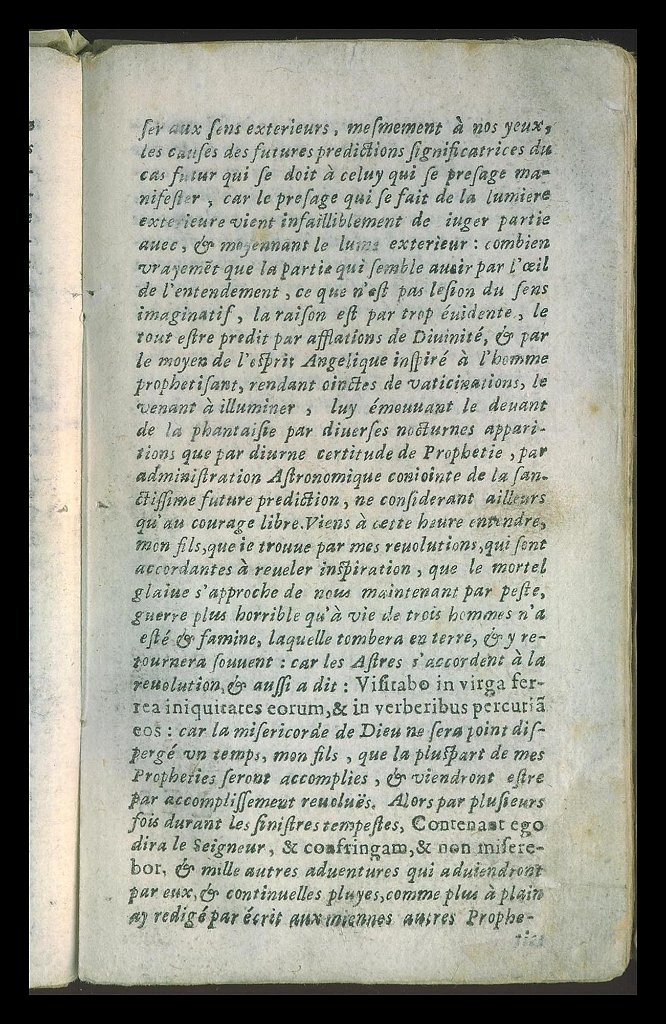 ſer aux ſens exterieurs, meſmement à nos yeux,
les cauſes des futures predictions ſignificatrices du
cas futur qui ſe doit à celuy qui ſe preſage ma-
nifeſter, car le preſage qui ſe fait de la lumiere
exterieure vient infailliblement de iuger partie
auec, & moyennant le lume exterieur: combien
vrayemẽt que la partie qui ſemble auoir par l'œil
de l'entendement, ce que n'eſt pas leſion du ſens
imaginatif, la raiſon eſt par trop éuidente, le
tout eſtre predit par afflations de Diuinité, & par
le moyen de l'eſprit Angelique inſpiré à l'homme
prophetiſant, rendant oinctes de vaticinations, le
venant à illuminer, luy émouuant le deuant
de la phantaiſie par diuerſes nocturnes appari-
tions que par diurne certitude de Prophetie, par
adminiſtration Aſtronomique coniointe de la ſan-
ctiſſime future prediction, ne conſiderant ailleurs
qu'au courage libre. Viens à cette heure entendre,
mon fils, que ie trouue par mes reuolutions, qui ſont
accordantes à reueler inſpiration, que le mortel
glaiue s'approche de nous maintenant par peſte,
guerre plus horrible qu'à vie de trois hommes n'a
eſté & famine, laquelle tombera en terre, & y re-
tournera ſouuent: car les Aſtres s'accordent à la
reuolution, & auſſi a dit: Viſitabo in virga fer-
rea iniquitates eorum, & in verberibus percutiã
eos: car la miſericorde de Dieu ne ſera point diſ-
pergé vn temps, mon fils, que la pluſpart de mes
Propheties ſeront accomplies, & viendront eſtre
par accompliſſement reuoluës. Alors par pluſieurs
fois durant les ſiniſtres tempeſtes, Conteram ego
dira le Seigneur, & confringam, & non miſere-
bor, & mille autres aduentures qui aduiendront
par eux, & continuelles pluyes, comme plus à plain
ay redigé par écrit aux miennes autres Prophe-
ties